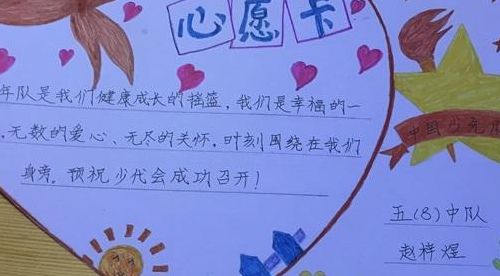 心愿卡
年队是我们健康成长的摇篮，我们是幸福的一
，无数的爱心、无尽的关怀，时刻围绕在我们
身旁，预祝少代会成功召开！
中国少先
五(8)中队
赵梓煜